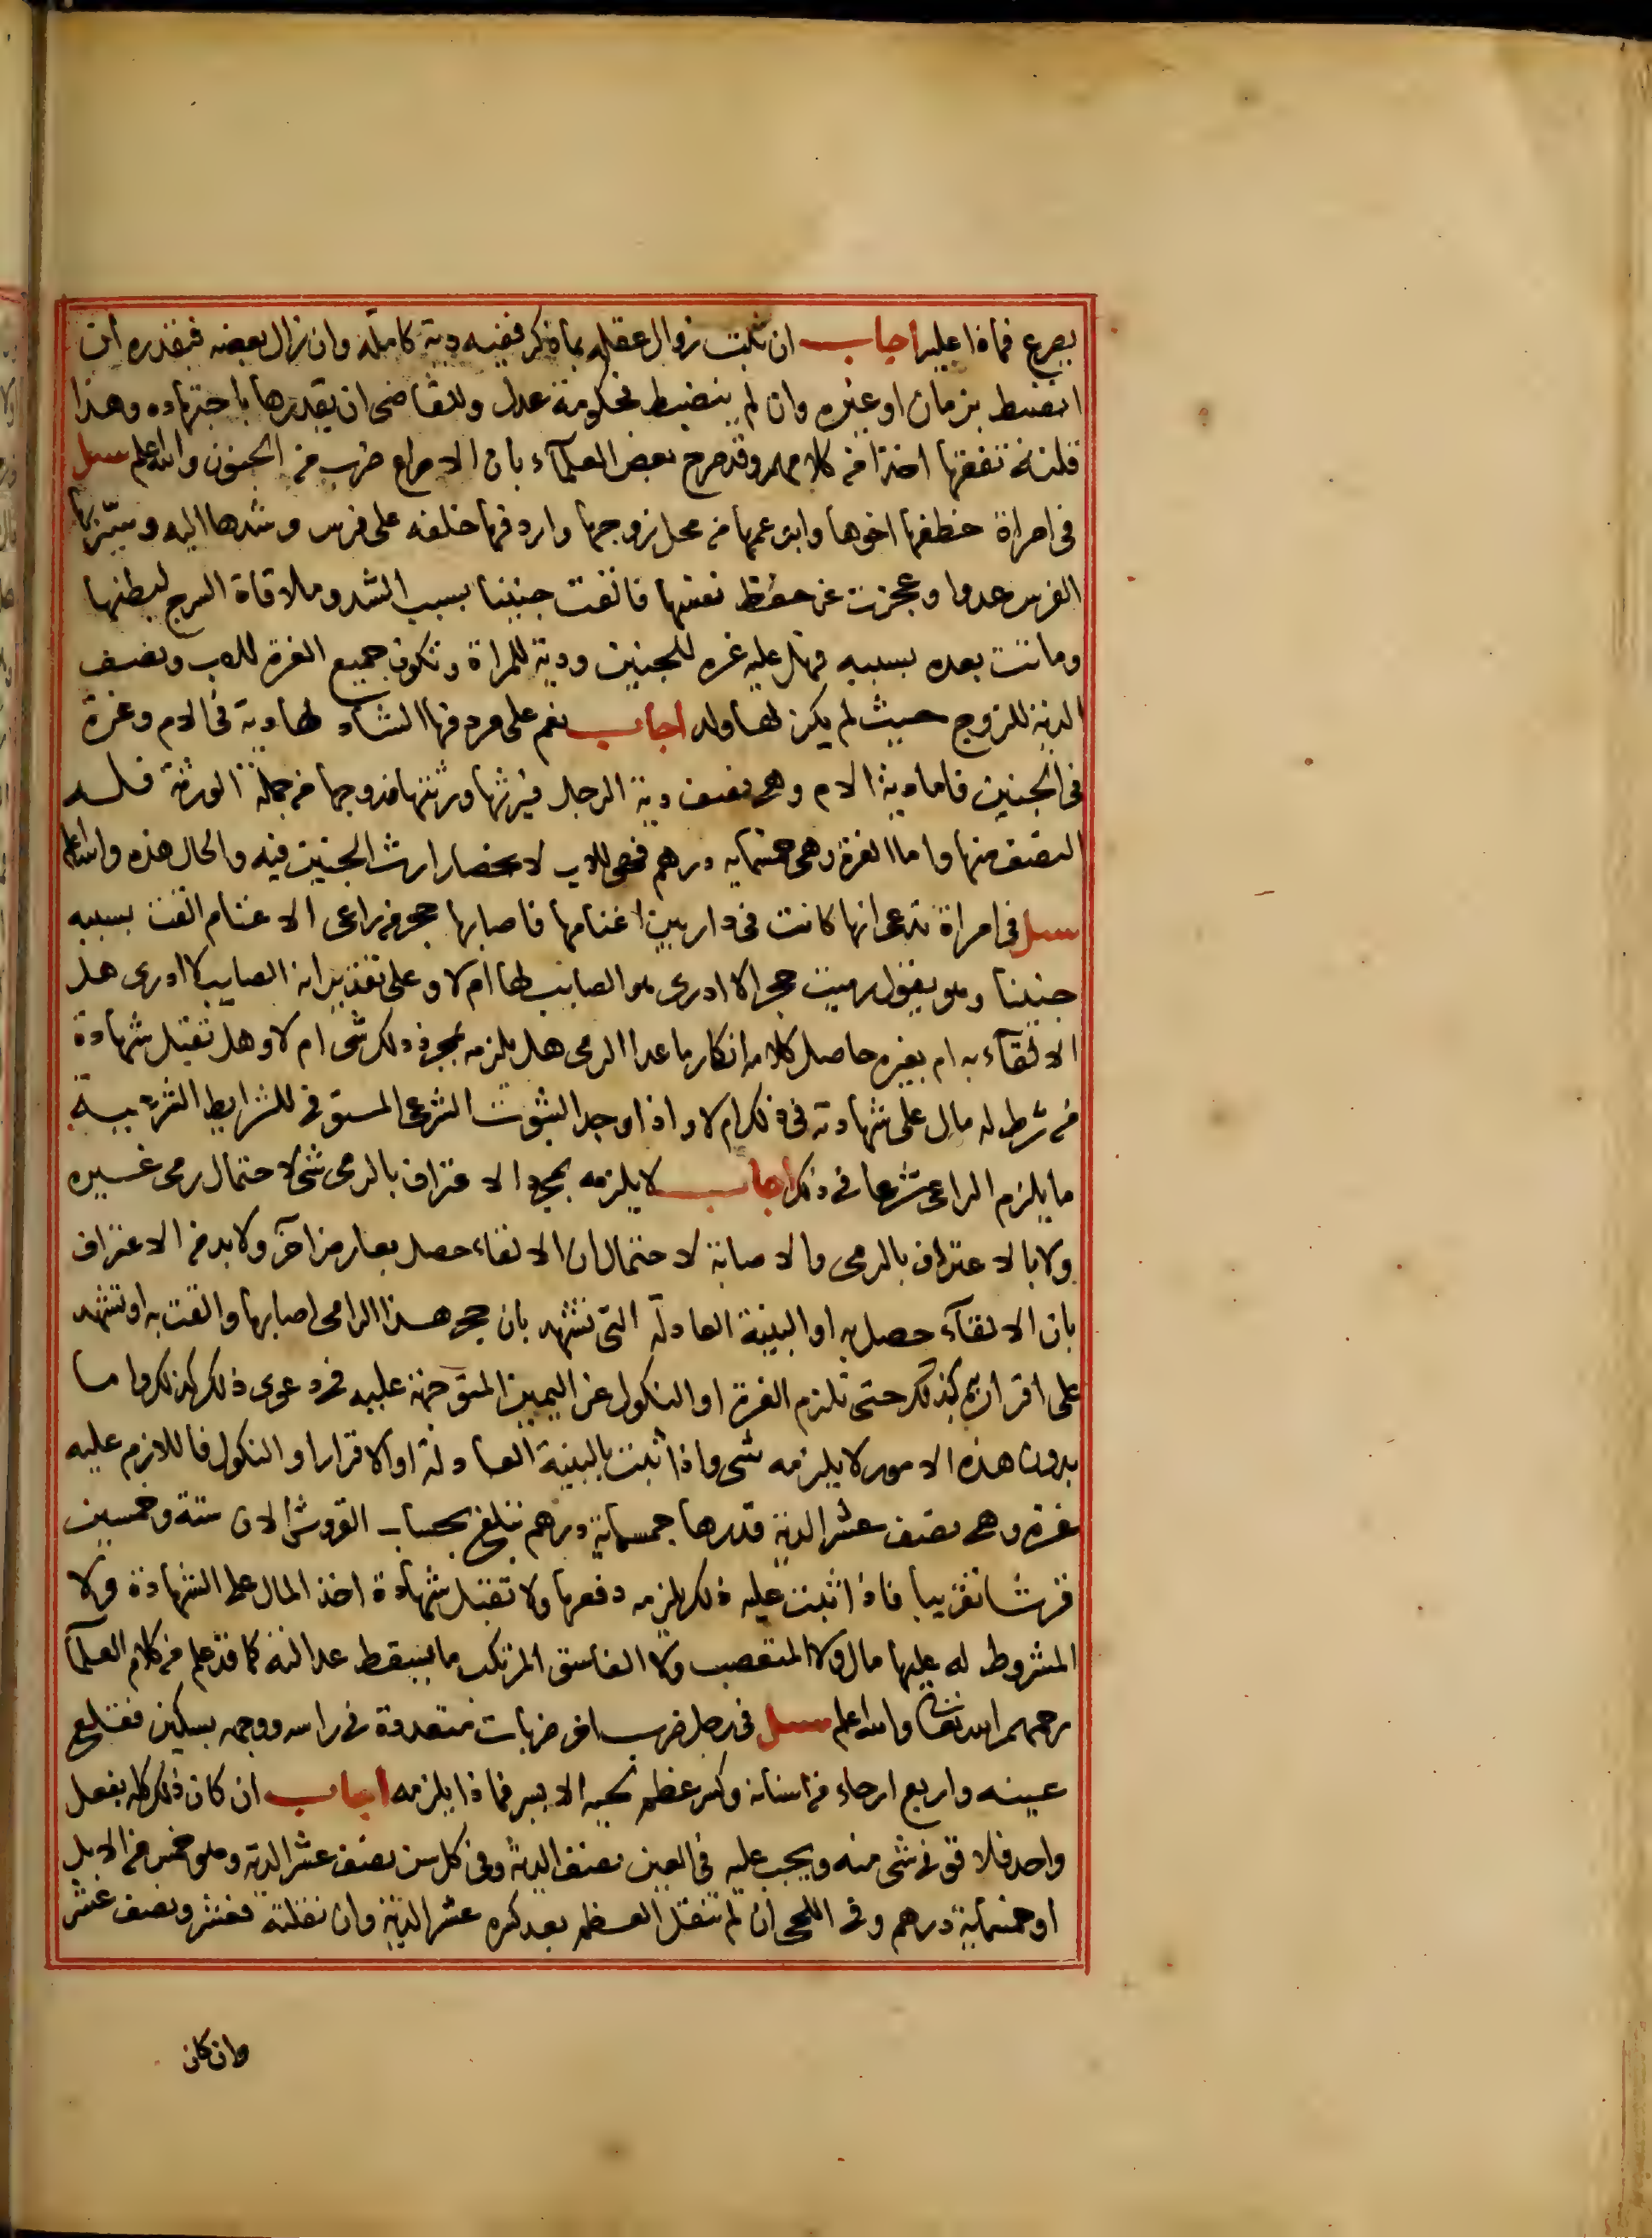 يصرع فماذا عليه اجاب ان ثبت زوال عقله بما ذكر ففيه دية كاملة وان زال بعضه فبقدره ان
انضبط بزمان او غيره وان لم ينضبط فحكومة عدل وللقاضى ان يقدرها باجتهاده وهذا
قلته تفقها اخذا من كلامهم وقد صرح بعض العلمآء بان الاصراع ضرب من الجنون والله اعلم سىل
فى امراة خطفها اخوها وابن عمها من محل زوجها واردفها خلفه على فرس وشدها اليه وسيّر بها
الفرس عدوا وعجزت عن حفظ نفسها فالقت جنينا بسبب الشد وملاقاة السرج لبطنها
وماتت بعده بسببه فهل عليه غرة للجنين ودية للمراة وتكون جميع الغرة للاب ونصف
الدية للزوج حيث لم يكن لها ولد اجاب نعم على مردفها الشاد لها دية فى الام وغرة
فى الجنين فاما دية الام وهى نصف دية الرجل فيرثها ورثتها فزوجها من جملة الورثة فله
النصف منها واما الغرة وهى خمسماية درهم فهى للاب لانحصار ارث الجنين فيه والحال هذه والله اعلم
سىل فى امراة تدعى انها كانت فى دار بين اغنامها فاصابها حجر من راعى الاغنام القت بسببه
جنينا وهو يقول رميت حجرا لا ادرى هو الصايب لها ام لا وعلى تقدير انه الصايب لا ادرى هل
الالقآء به ام بغيره حاصل كلامه انكار ما عدا الرمى هل يلزمه بمجرد ذلك شى ام لا وهل تقبل شهادة
من شرط له مال على شهادته فى ذلك ام لا واذا وجد الثبوت الشرعى المستوفى للشرايط الشرعية
ما يلزم الراعى شرعا فى ذلك اجاب لا يلزمه بمجرد الاعتراف بالرمى شى لاحتمال رمى غيره
ولا بالاعتراف بالرمى والاصابة لاحتمال ان الالقاء حصل بعارض آخر ولا بد من الاعتراف
بان الالقآء حصل به او البينة العادلة التى تشهد بان حجر هذا الرامى اصابها والقت به او تشهد
على اقراره بذلك حتى تلزم الغرة او النكول عن اليمين المتوجهة عليه فى دعوى ذلك كذلك واما
بدون هذه الامور لا يلزمه شى واذا ثبت بالبينة العادلة او الاقرار او النكول فاللازم عليه
غرة وهى نصف عشر الدية قدرها خمسماية درهم تبلغ بحساب القروش الان ستة وخمسين
قرشا تقريبا فاذا ثبت عليه ذلك يلزمه دفعها ولا تقبل شهادة اخذ المال على الشهادة ولا
المشروط له عليها مال ولا المتعصب ولا الفاسق المرتكب ما يسقط عدالته كما قد علم من كلام العلمآ
رحمهم الله تعالى والله اعلم سىل فى رجل ضرب اخر ضربات متعددة فى راسه ووجهه بسكين فقلع
عينه واربع ارحاء من اسنانه وكسر عظم لحيه الايسر فماذا يلزمه اجاب ان كان ذلك كله بفعل
واحد فلا قود فى شى منه ويجب عليه فى العين نصف الدية وفى كل سن نصف عشر الدية وهو خمس من الابل
او خمسماية درهم وفى اللحى ان لم تنقل العظم بعد كسره عشر الدية وان نقلته فعشر ونصف عشر
وان كان